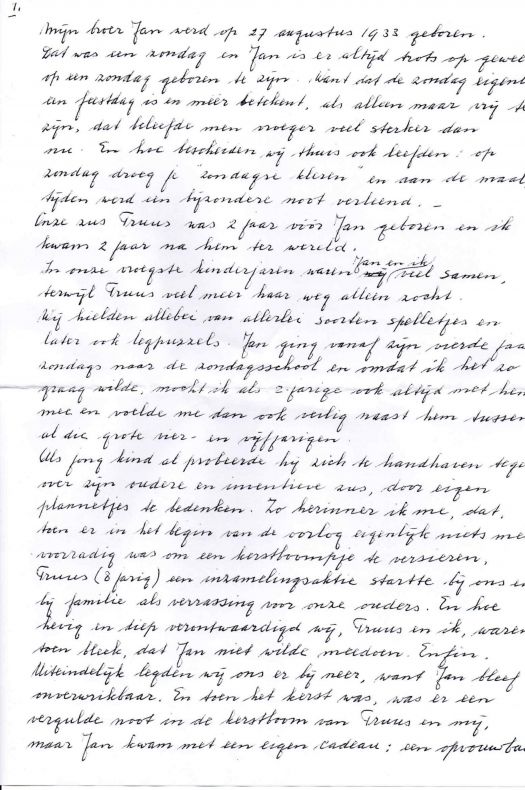 1.
Mijn broer Jan werd op 27 augustus 1933 geboren.
Dat was een zondag en Jan is er altijd trots op gewee
op een zondag geboren te zijn. Want dat de zondag eigenl
een feestdag is en meer betekent, als alleen maar vrij te
zijn, dat beleefde men vroeger veel sterker dan
nu. En hoe bescheiden wij thuis ook leefden: op
zondag droeg je "zondagse kleren" en aan de maal
tijden werd een bijzondere noot verleend. –
Onze zus Truus was 2 jaar vóór Jan geboren en ik
kwam 2 jaar na hem ter wereld.
In onze vroegste kinderjaren waren Jan en ik veel samen,
terwijl Truus veel meer haar weg alleen zocht.
Wij hielden allebei van allerlei soorten spelletjes en
later ook legpuzzels. Jan ging vanaf zijn vierde jaa
zondags naar de zondagsschool en omdat ik het zo
graag wilde, mocht ik als 2-jarige ook altijd met hem
mee en voelde me dan ook veilig naast hem tussen
al die grote vier- en vijfjarigen.
Als jong kind al probeerde hij zich te handhaven tege
over zijn oudere en inventieve zus, door eigen
plannetjes te bedenken. Zo herinner ik me, dat,
toen er in het begin van de oorlog eigenlijk niets me
voorradig was om een kerstboompje te versieren,
Truus (8 jarig) een inzamelingsaktie startte bij ons en
bij familie als verrassing voor onze ouders. En hoe
hevig en diep verontwaardigd wij, Truus en ik, waren
toen bleek, dat Jan niet wilde meedoen. Enfin.
Uiteindelijk legden wij ons er bij neer, want Jan bleef
onverwrikbaar. En toen het kerst was, was er een
vergulde noot in de kerstboom van Truus en mij,
maar Jan kwam met een eigen cadeau: een opvouwba